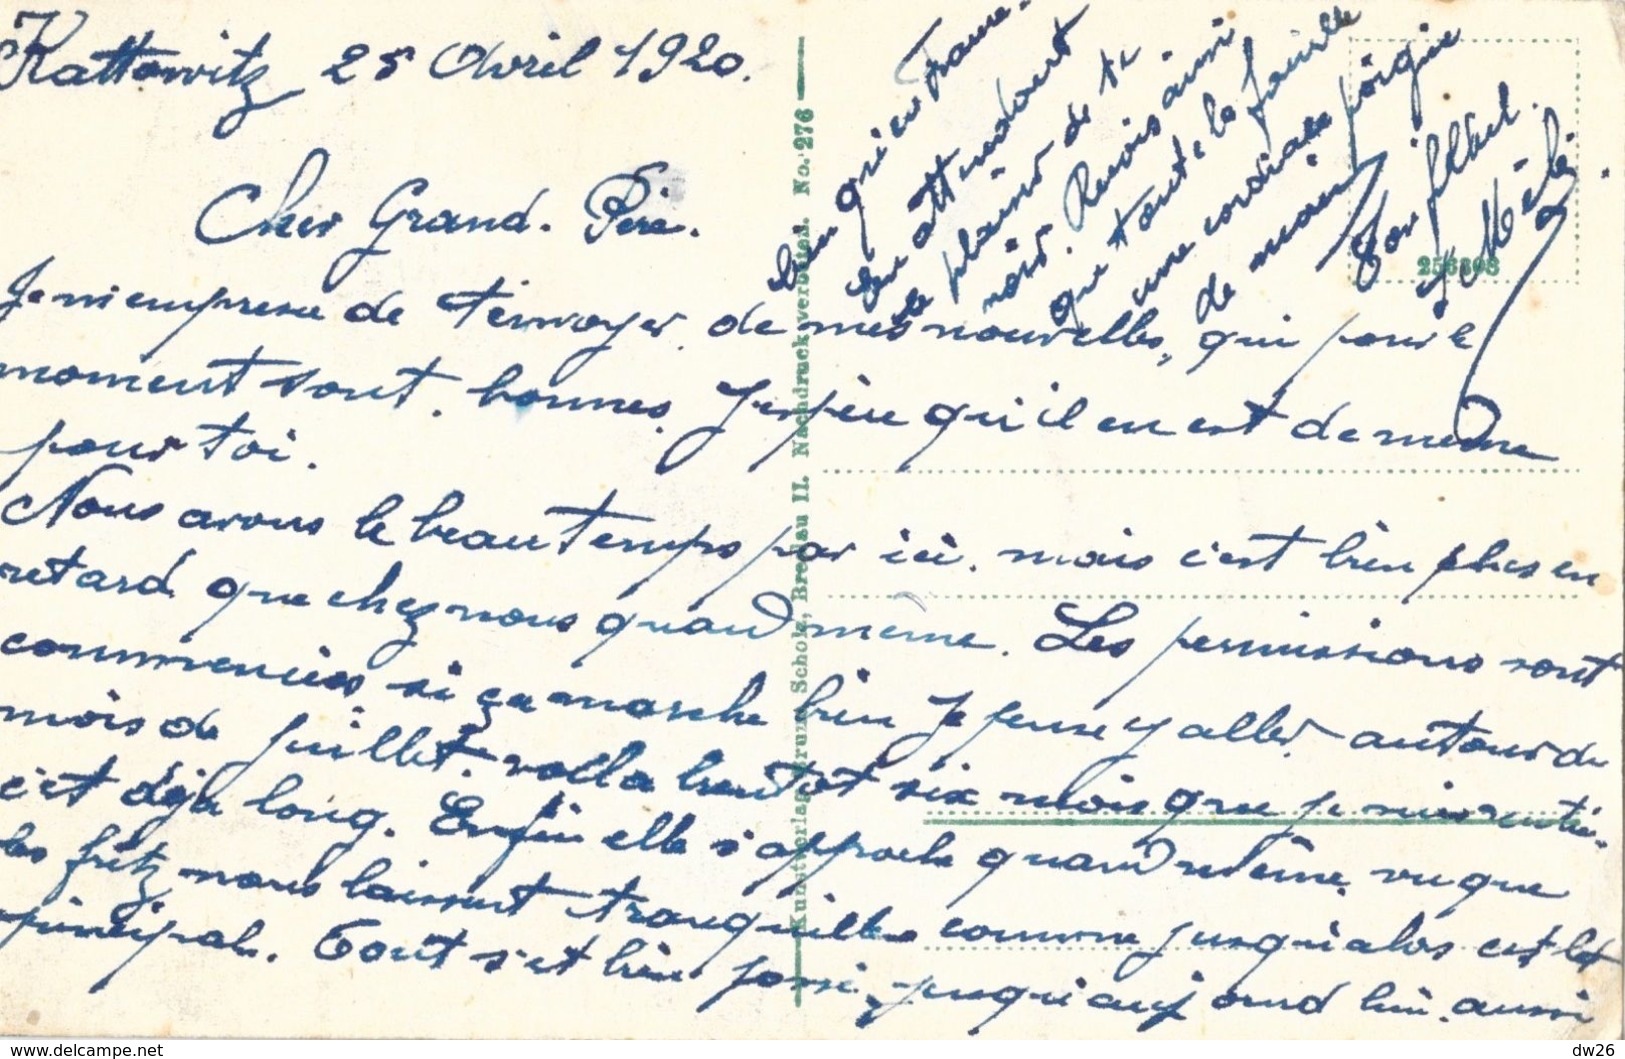 Kattowitz 25 Avril 1920.
Cher Grand. Père.
Je m'empresse de t'envoyer de mes nouvelles, qui pour le
moment sont bonnes. J'espère qu'il en est de même
pour toi.
Nous avons le beau temps par ici. mais c'est bien plus en
retard que chez nous quand même. Les permissions sont
commencées si ça marche bien je pense y aller autour du
mois de juillet. voila bientôt six mois que je suis
c'est déja long. Enfin elle s'approche quand même, vu que
les fritz nous laissent tranquilles comme jusqu'alos c'est le
principal. Tout s'est bien passé jusqu'aujourd hui. aussi
bien qu'en France.
En attendant
le plaisir de te
voir. Reçois ainsi
que toute la famille
une cordiale poignée
de main
Ton filleul
Kunstverlag Bruno Scholz, Breslau II. Nachdruck verboten. No. 276
dw26
www.delcampe.net